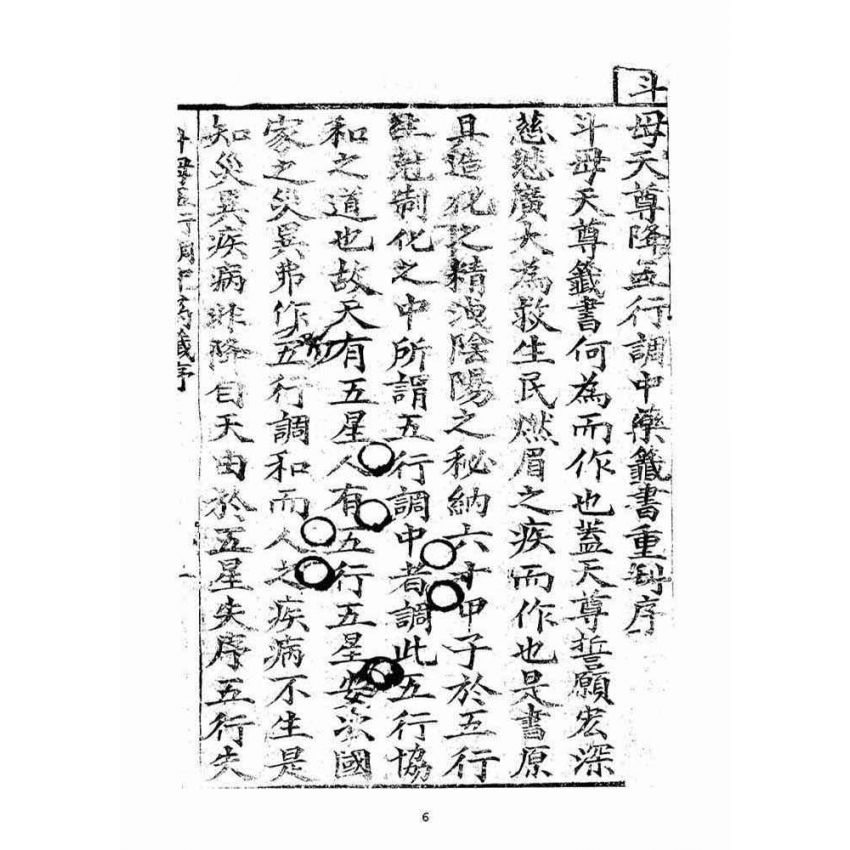 斗
母天尊降五行調中藥籤書重刋序
斗母天尊籤書何為而作也蓋天尊誓願宏深
慈悲廣大為救生民燃眉之疾而作也是書原
具造化之精洩陰陽之秘納六十甲子於五行
生尅制化之中所謂五行調中者調此五行協
和之道也故天有五星人有五行五星安次國
家之災異弗作五行調和而人之疾病不生是
知災異疾病非降自天由於五星失序五行失
斗母五行調中藥籤序
6